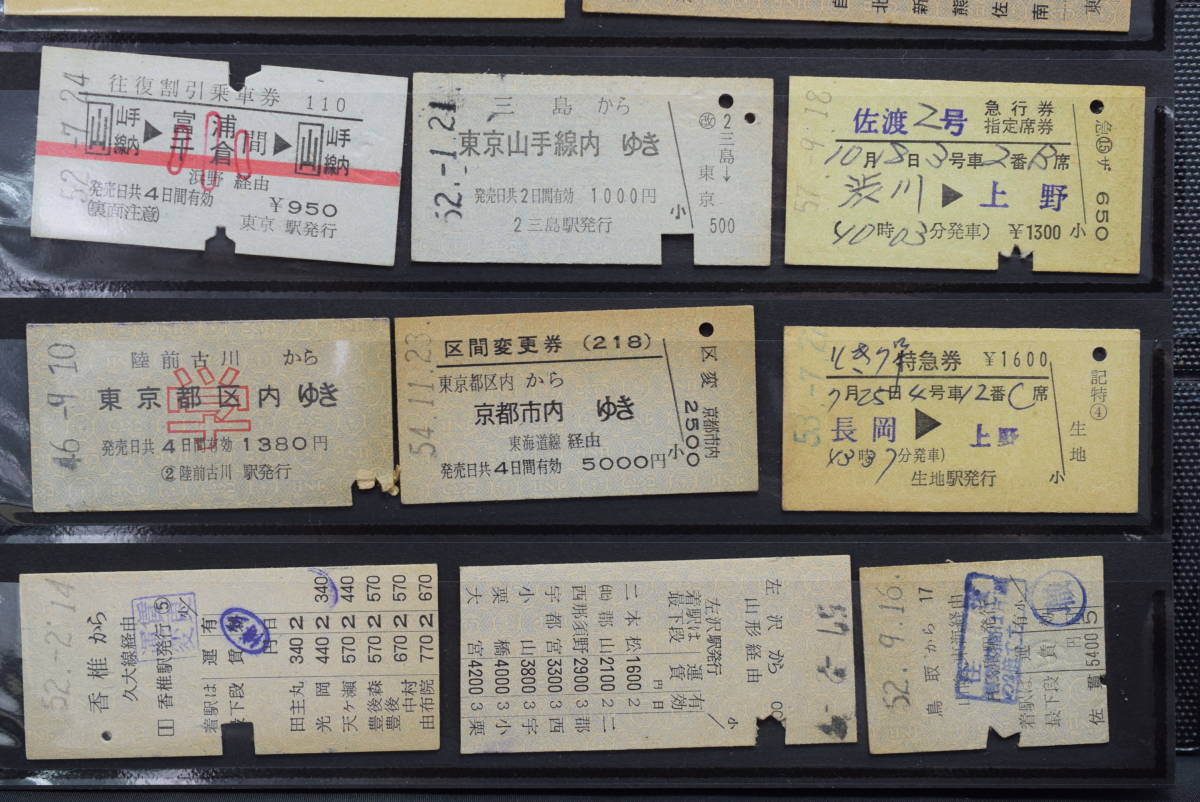 自
北
新
熊
佐
南
東
52.-7.24
往復割引乗車券
110
山手線内
富浦
岩倉
間
山手線内
浜野 経由
発売日共4日間有効
¥950
(裏面注意)
東京 駅発行
52.-1.21
三島 から
東京山手線内 ゆき
発売日共2日間有効 1000円
2三島駅発行
小
改
2
三島→東京
500
57.-9.18
佐渡2号
急行券
指定席券
10月18日3号車2番B席
渋川▶上野
(10時03分発車)
¥1300
小
650
46.-9.10
陸前古川 から
東京都区内 ゆき
学
発売日共4日間有効 1380円
②陸前古川 駅発行
54.11.23
区間変更券 (218)
東京都区内 から
京都市内 ゆき
東海道線 経由
発売日共4日間有効 5000円
小
区変
京都市内
2500
53.-7.2
とき7号
特急券
¥1600
7月25日4号車12番C席
長岡▶上野
分発車)
生地駅発行
小
記特④
生地
52.-2.14
香椎から
久大線経由
1 香椎駅発行 ⑤
着駅は
最下段
運賃
有効
円
日
田主丸 340 2 340
光岡 440 2 440
天ヶ瀬 570 2 570
豊後森 570 2 570
豊後中村 670 2 570
由布院 770 2 670
左沢 から
山形経由
左沢駅発行
着駅は
最下段
運賃
有効
円
日
小
二本松 1600 2
郡山 2100 2 二
西那須野 2900 3 郡
宇都宮 3300 3 西
小山 3800 3 宇
栗橋 4000 3 小
大宮 4200 3 栗
52.-9.16.
鳥取から
17
着駅は
最下段
佐貫 5400 5